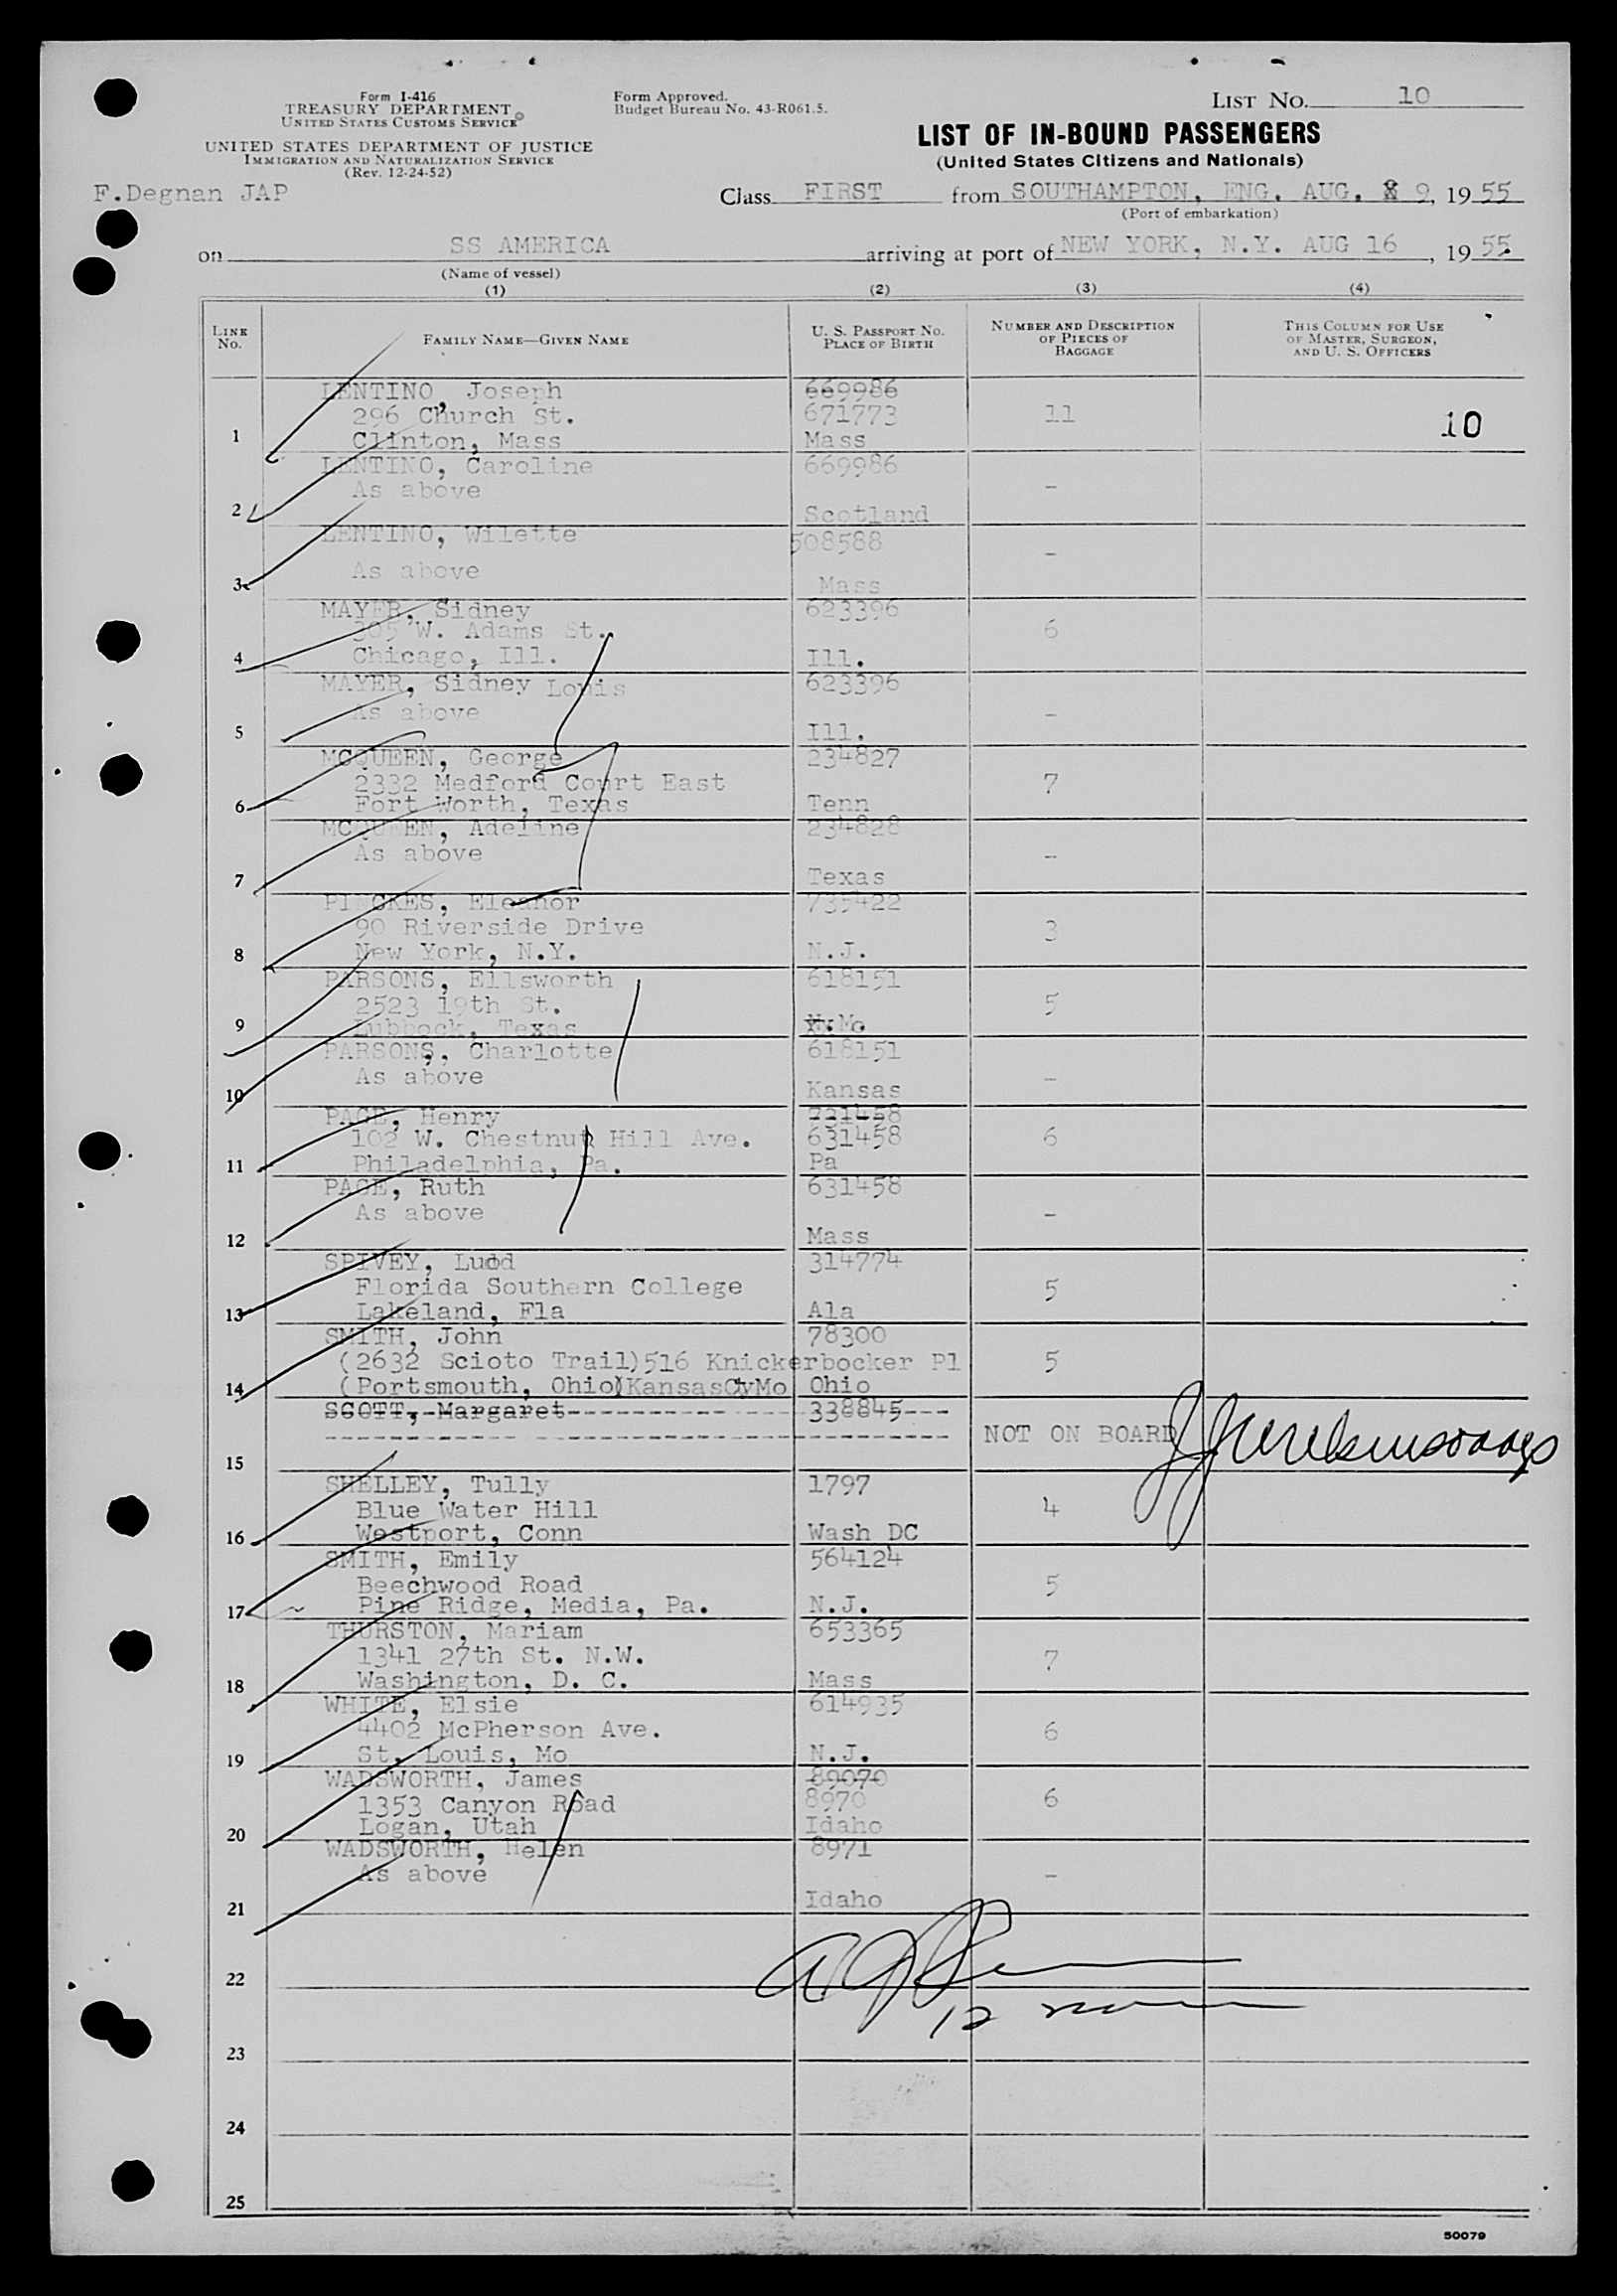 Form I-416
TREASURY DEPARTMENT
UNITED STATES CUSTOMS SERVICE
UNITED STATES DEPARTMENT OF JUSTICE
IMMIGRATION AND NATURALIZATION SERVICE
(Rev. 12-24-52)
Form Approved.
Budget Bureau No. 43-R061.5.
LIST NO. 10
LIST OF IN-BOUND PASSENGERS
(United States Citizens and Nationals)
F.Degnan JAP
Class FIRST from SOUTHAMPTON, ENG. AUG. 9, 1955
(Port of embarkation)
on SS AMERICA arriving at port of NEW YORK, N.Y. AUG 16, 1955
(Name of vessel)
(1) (2) (3) (4)
LINE NO. FAMILY NAME—GIVEN NAME U. S. PASSPORT NO. PLACE OF BIRTH NUMBER AND DESCRIPTION OF PIECES OF BAGGAGE THIS COLUMN FOR USE OF MASTER, SURGEON, AND U. S. OFFICERS
LENTINO, Joseph 669986
296 Church St. 671773 11
1 Clinton, Mass Mass 10
LENTINO, Caroline 669986
As above -
2 Scotland
LENTINO, Wilette 508588
As above -
3 Mass
MAYER, Sidney 623396
305 W. Adams St. 6
4 Chicago, Ill. Ill.
MAYER, Sidney Louis 623396
As above -
5 Ill.
MCQUEEN, George 234827
2332 Medford Court East 7
6 Fort Worth, Texas Tenn
MCQUEEN, Adeline 234828
As above -
7 Texas
Eleanor 735422
90 Riverside Drive 3
8 New York, N.Y. N.J.
PARSONS, Ellsworth 618151
2523 19th St. 5
9 Lubbock, Texas Mo
PARSONS, Charlotte 618151
As above -
10 Kansas
PAGE, Henry 731458
102 W. Chestnut Hill Ave. 631458 6
11 Philadelphia, Pa. Pa
PAGE, Ruth 631458
As above -
12 Mass
SPIVEY, Ludd 314774
Florida Southern College 5
13 Lakeland, Fla Ala
SMITH, John 78300
(2632 Scioto Trail)516 Knickerbocker Pl 5
14 (Portsmouth, Ohio)KansasCyMo Ohio
SCOTT, Margaret 338845
NOT ON BOARD
15
SHELLEY, Tully 1797
Blue Water Hill 4
16 Westport, Conn Wash DC
SMITH, Emily 564124
Beechwood Road 5
17 Pine Ridge, Media, Pa. N.J.
THURSTON, Mariam 653365
1341 27th St. N.W. 7
18 Washington, D. C. Mass
WHITE, Elsie 614935
4402 McPherson Ave. 6
19 St. Louis, Mo N.J.
WADSWORTH, James 89070
1353 Canyon Road 8970 6
20 Logan, Utah Idaho
WADSWORTH, Helen 8971
As above -
21 Idaho
22
12
23
24
25
50079